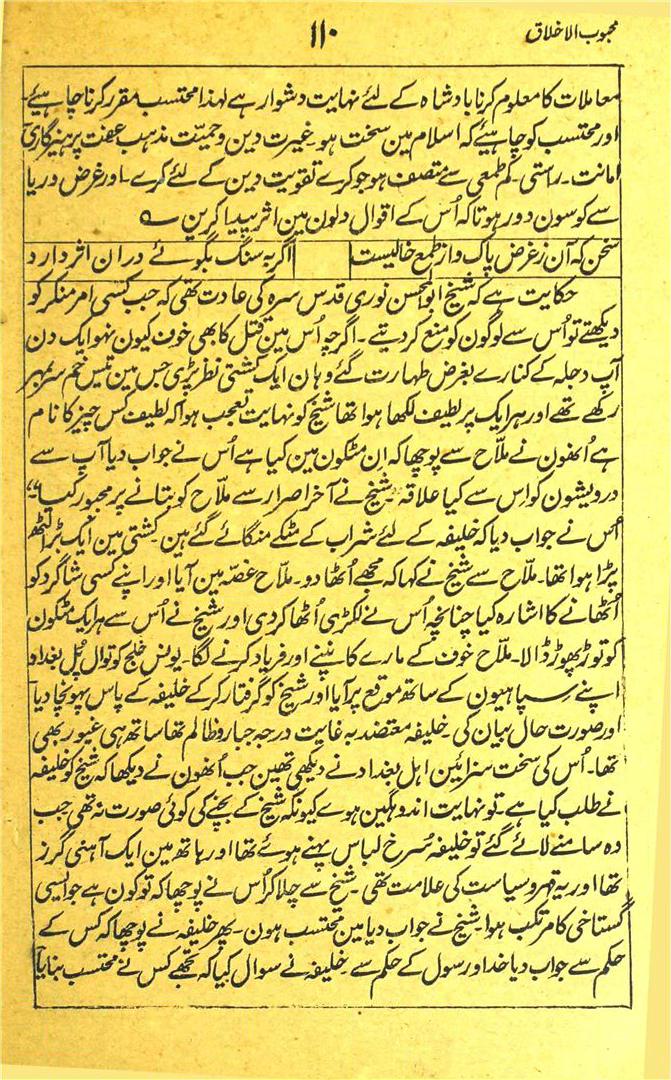 محبوب الاخلاق
۱۱۰
معاملات کا معلوم کرنا بادشاہ کے لئے نہایت دشوار ہے لہذا محتسب مقرر کرنا چاہیئے۔
اور محتسب کو چاہیئے کہ اسلام مین سخت ہو۔ غیرت دین وحمیت مذہب عفت پرہیزگاری
امانت۔ راستی۔ کم طمعی سے متصف ہو جو کرے تقویت دین کے لئے کرے۔ اور غرض و ریا
سے کوسون دور ہو تاکہ اُس کے اقوال دلون مین اثر پیدا کرین ؎
سخن کہ آن ز غرض پاک و از طمع خالیست اگر بہ سنگ بگوئے دران اثر دارد
حکایت ہے کہ شیخ ابوالحسن نوری قدس سرہ کی عادت تھی کہ جب کسی امر منکر کو
دیکھتے تو اُس سے لوگون کو منع کر دیتے۔ اگرچہ اُس مین قتل کا بھی خوف کیون نہو ایک دن
آپ دجلہ کے کنارے بغرض طہارت گئے وہان ایک کشتی نظر پڑی جس مین تیس خم سر بمہر
رکھے تھے اور ہر ایک پر لطیف لکھا ہوا تھا شیخ کو نہایت تعجب ہوا کہ لطیف کس چیز کا نام
ہے اُنھون نے ملّاح سے پوچھا کہ ان مٹکون مین کیا ہے اُس نے جواب دیا آپ سے
درویشون کو اس سے کیا علاقہ۔ شیخ نے آخر اصرار سے ملّاح کو بتانے پر مجبور کیا
اُس نے جواب دیا کہ خلیفہ کے لئے شراب کے مٹکے منگائے گئے ہین۔ کشتی مین ایک بڑا لٹھ
پڑا ہوا تھا۔ ملّاح سے شیخ نے کہا کہ مجھے اُٹھا دو۔ ملّاح غصّہ مین آیا اور اپنے کسی شاگرد کو
اُٹھانے کا اشارہ کیا چنانچہ اُس نے لکڑی اُٹھا کر دی اور شیخ نے اُس سے ہر ایک مٹکون
کو توڑ پھوڑ ڈالا۔ ملّاح خوف کے مارے کانپنے اور فریاد کرنے لگا۔ یونس خلج کوتوال پُل بغداد
اپنے سپاہیون کے ساتھ موقع پر آیا اور شیخ کو گرفتار کر کے خلیفہ کے پاس پہونچا دیا
اور صورت حال بیان کی۔ خلیفہ معتضد بہ غایت درجہ جبار و ظالم تھا ساتھ ہی غیور بھی
تھا۔ اُس کی سخت سزائین اہل بغداد نے دیکھی تھین جب اُنھون نے دیکھا کہ شیخ کو خلیفہ
نے طلب کیا ہے۔ تو نہایت اندوہگین ہوے کیونکہ شیخ کے بچنے کی کوئی صورت نہ تھی جب
وہ سامنے لائے گئے تو خلیفہ سُرخ لباس پہنے ہوئے تھا اور ہاتھ مین ایک آہنی گرز
تھا اور یہ قہر و سیاست کی علامت تھی۔ شیخ سے چلا کر اُس نے پوچھا کہ تو کون ہے جو ایسی
گستاخی کا مرتکب ہوا۔ شیخ نے جواب دیا مین محتسب ہون۔ پھر خلیفہ نے پوچھا کہ کس کے
حکم سے جواب دیا خدا و رسول کے حکم سے۔ خلیفہ نے سوال کیا کہ تجھے کس نے محتسب بنایا